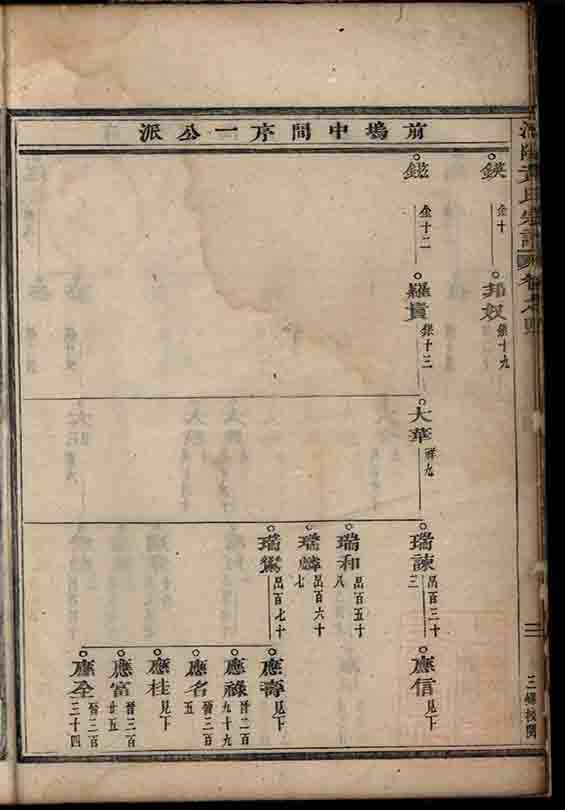 前塢中間序一公派
鍈
金十
邦奴
銀十九
鎡
金十二
羅貴
銀十三
大華
祥九
瑞諫
呂百三十三
應信
見下
瑞和
呂百五十八
瑞麟
呂百六十七
瑞鴛
呂百七十
應壽
見下
應祿
晉二百九十九
應名
晉三百五
應桂
見下
應富
晉三百廿五
應全
晉三百三十四
三